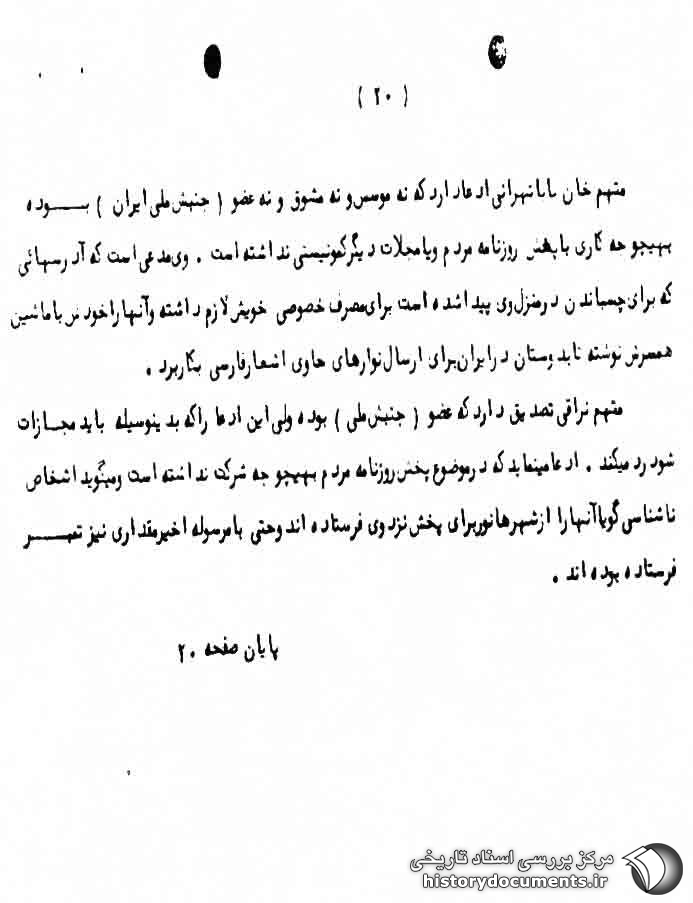 ( ۲۰ )
متهم خان بابا تهرانی ادعا دارد که نه موسس و نه مشوق و نه عضو ( جنبش ملی ایران ) بـــوده
بهیچوجه کاری با پخش روزنامه مردم و یا مجلات دیگر کمونیستی نداشته است . وی مدعی است که آدرسهائی
که برای چسباندن در منزل وی پیدا شده است برای مصرف خصوصی خویش لازم داشته و آنها را خود نیز با ماشین
همسرش نوشته تا بدوستان در ایران برای ارسال نوارهای حاوی اشعار فارسی بکار برد .
متهم نراقی تصدیق دارد که عضو ( جنبش ملی ) بوده ولی این ادعا را که بدینوسیله باید مجازات
شود رد میکند . ادعا مینماید که در موضوع پخش روزنامه مردم بهیچوجه شرکت نداشته است و میگوید اشخاص
ناشناسی گویا آنها را از شهر هانور برای پخش نزد وی فرستاده اند و حتی با مرسوله اخیر مقداری نیز تمبـــر
فرستاده بوده اند .
پایان صفحه ۲۰
مرکز بررسی اسناد تاریخی
historydocuments.ir